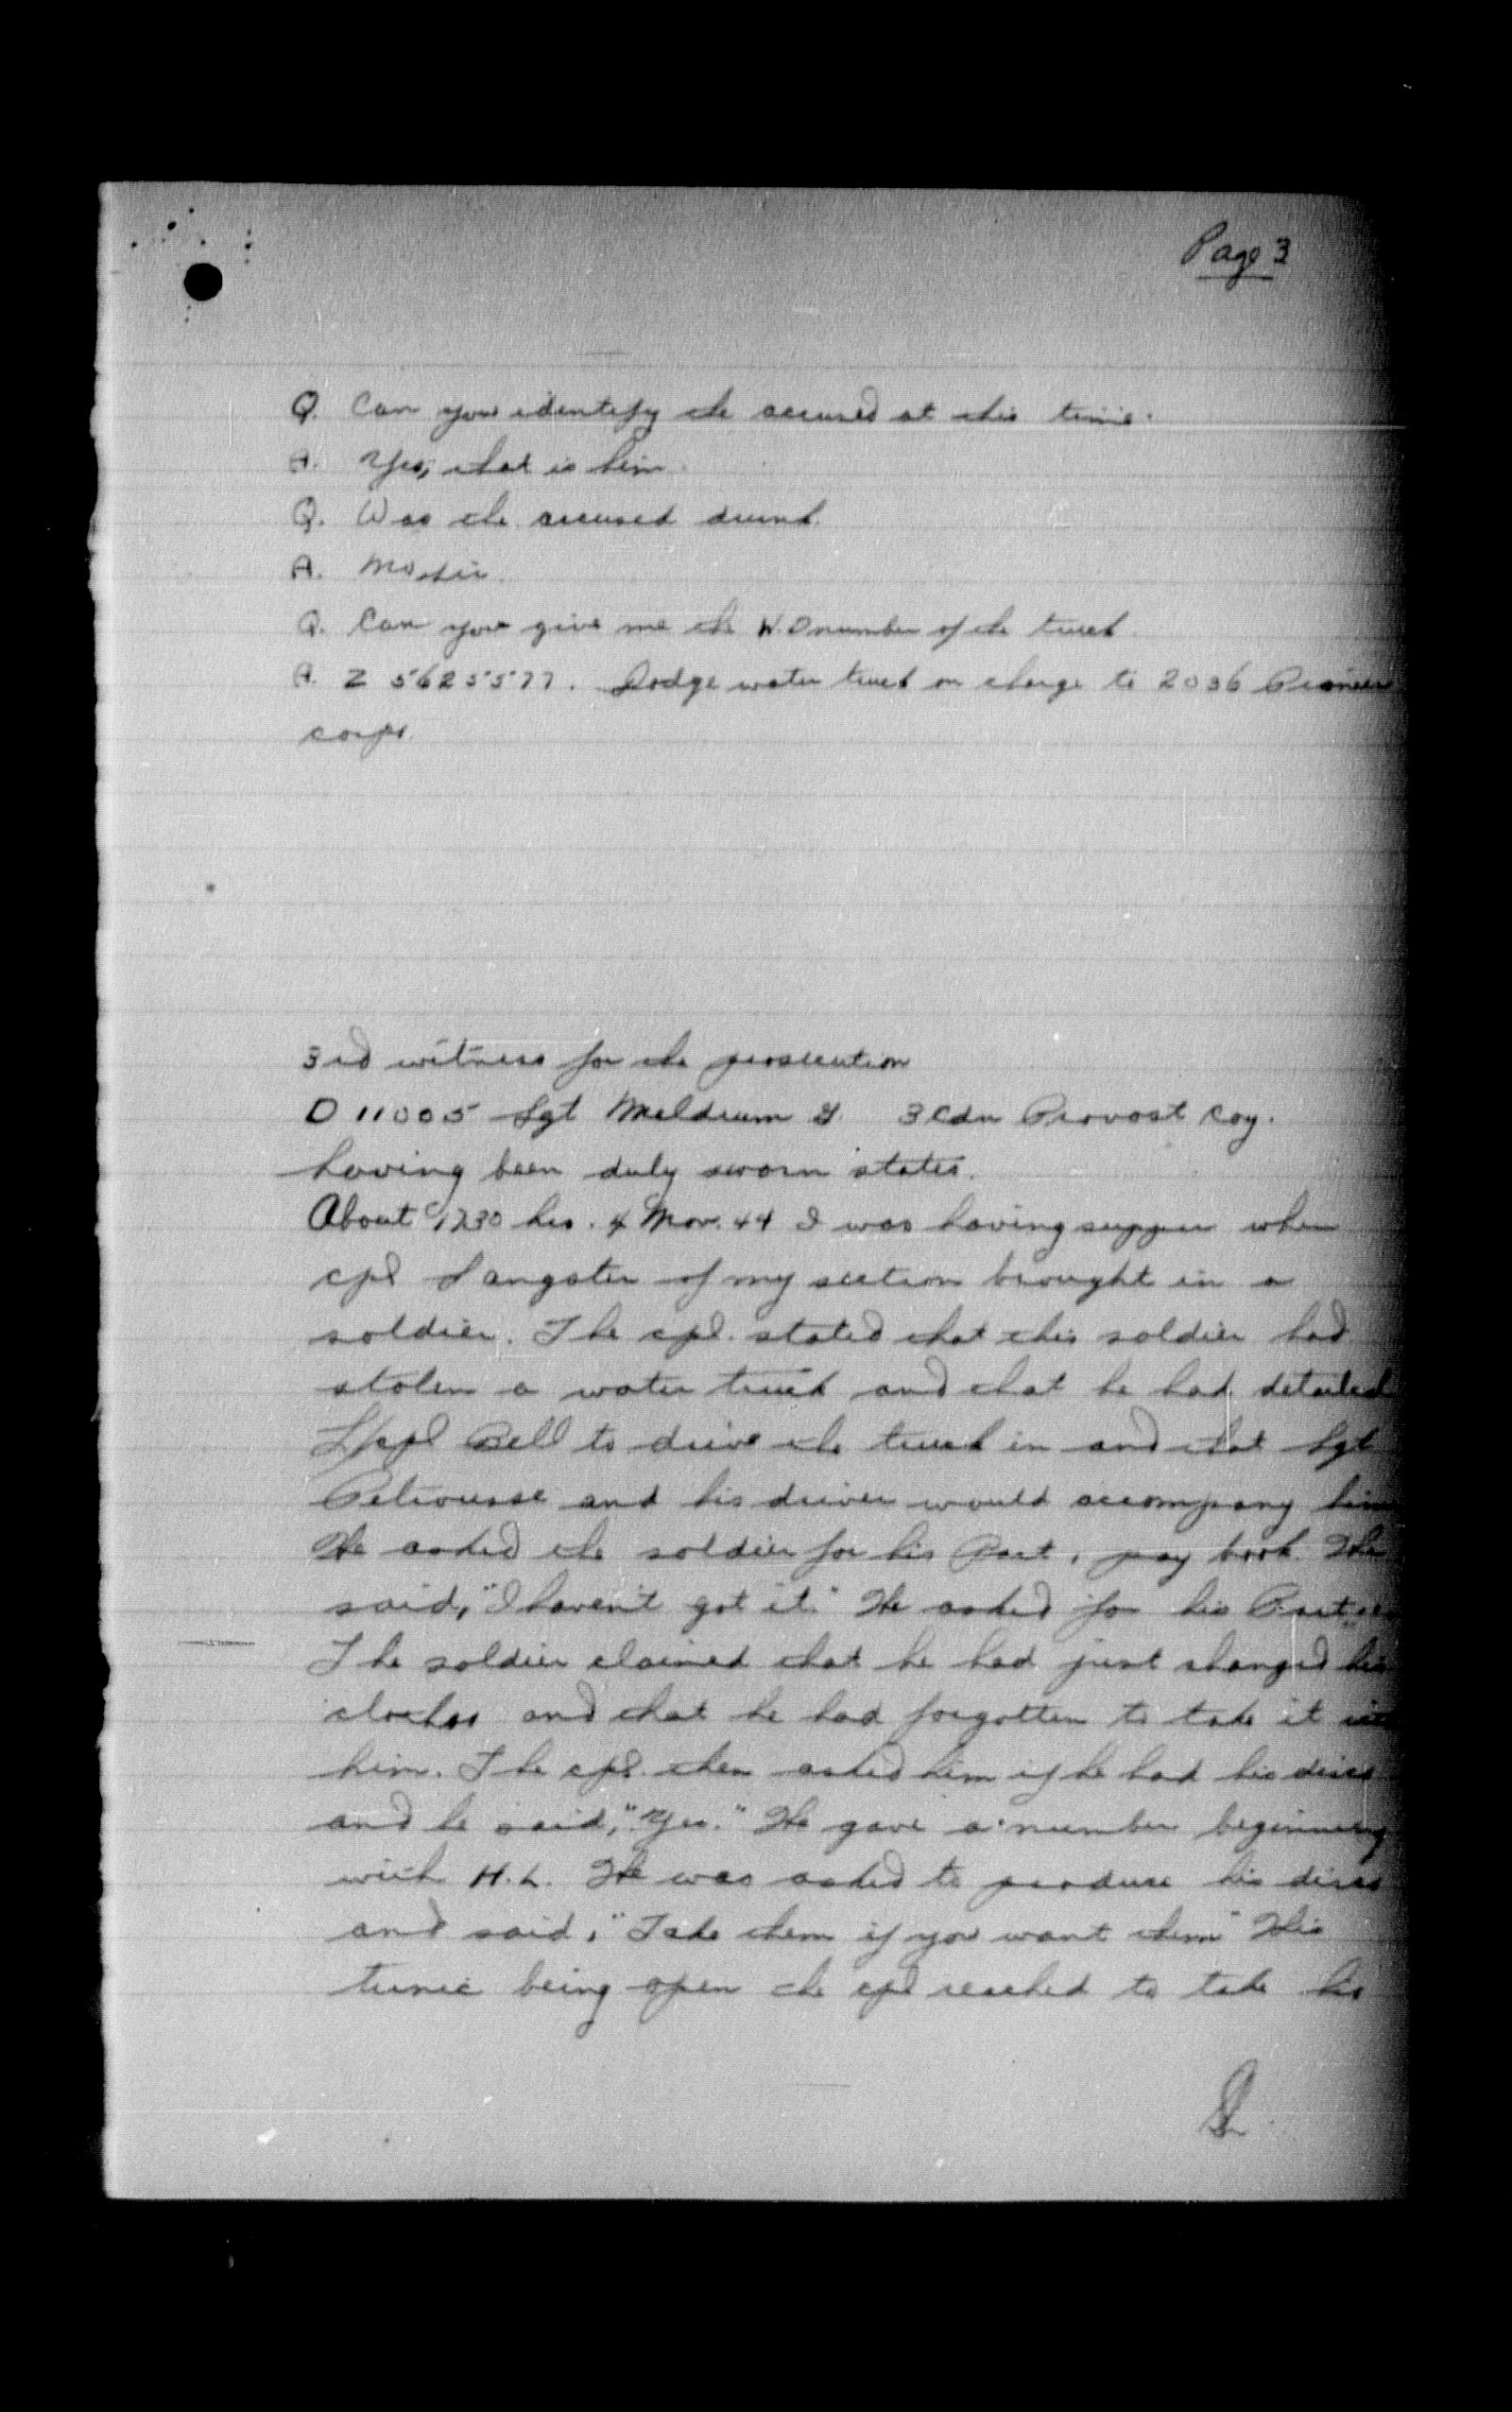 Page 3
Q. Can you identify the accused at this time.
A. Yes, that is him.
Q. Was the accused drunk.
A. No sir.
Q. Can you give me the W.D number of the truck.
A. Z 5625577. Dodge water truck on charge to 2036 Pioneer
corps.
3rd witness for the prosecution
D 11005 Sgt Meldrum G. 3 Cdn Provost Coy.
having been duly sworn states.
About 1730 hrs. 4 Nov. 44 I was having supper when
cpl Sangster of my section brought in a
soldier. The cpl. stated that this soldier had
stolen a water truck and that he had detailed
L/cpl Bell to drive the truck in and that Sgt
Petrousse and his driver would accompany him
He asked the soldier for his Part 1 pay book. He
said, "I haven't got it." He asked for his Part
The soldier claimed that he had just changed his
clothes and that he had forgotten to take it
him. The cpl. then asked him if he had his discs
and he said, "Yes." He gave a number beginning
with H.L. He was asked to produce his discs
and said, "Take them if you want them" His
tunic being open the cpl reached to take his